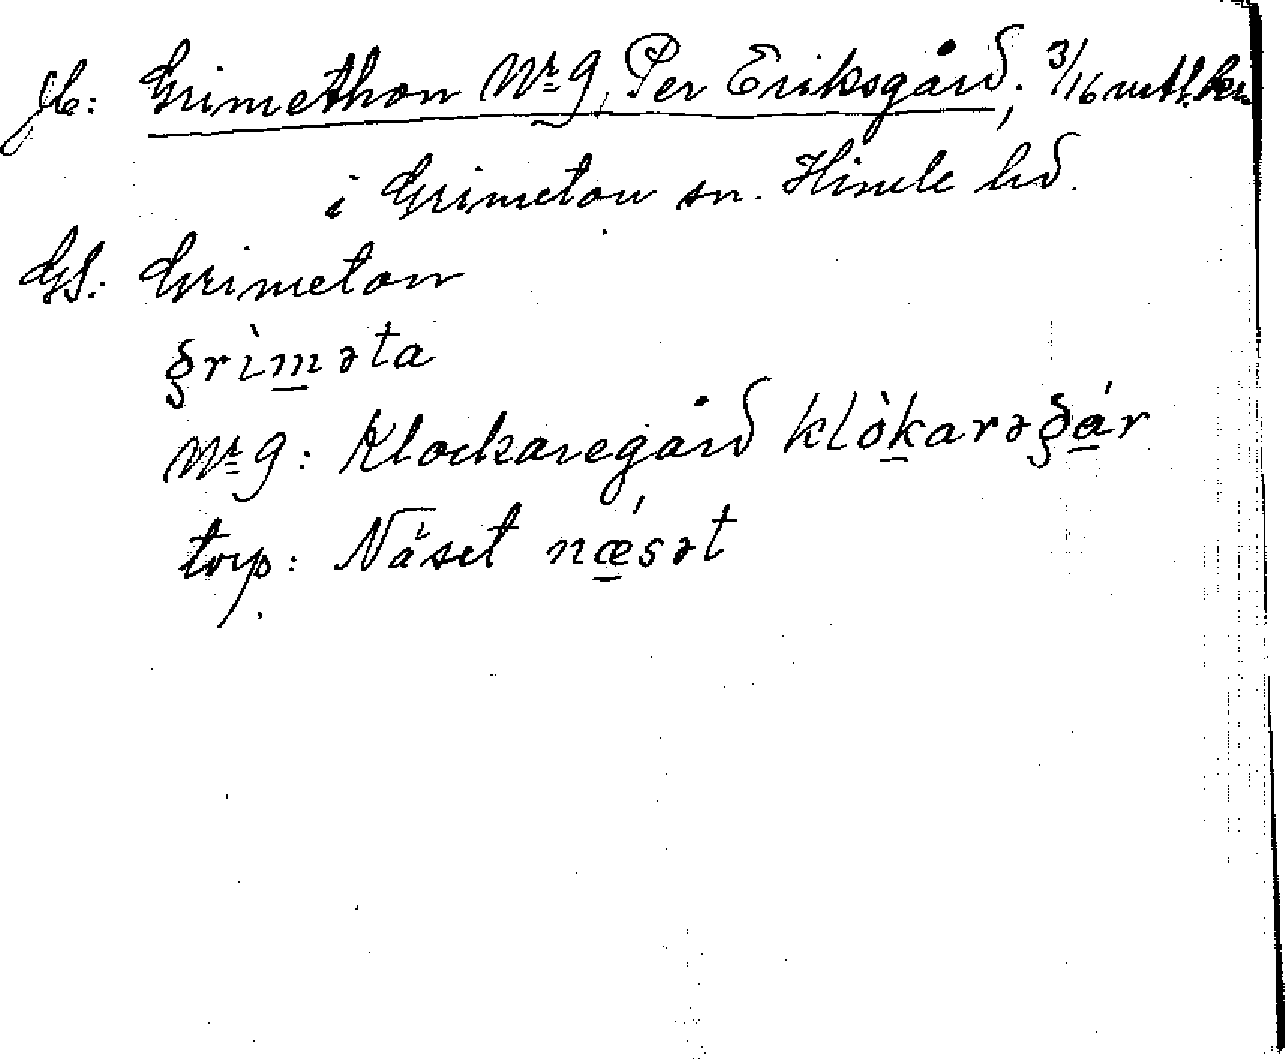 Jb: Grimethon Nr 9, Per Eriksgård; 3/16 mtl. kr.
i Grimeton sn. Himle hd.
GS: Grimeton
g̨rìm̲əta
Nr 9: Klockaregård klòk̲arəg̨á̲r
torp: Näset nǽ̲sət